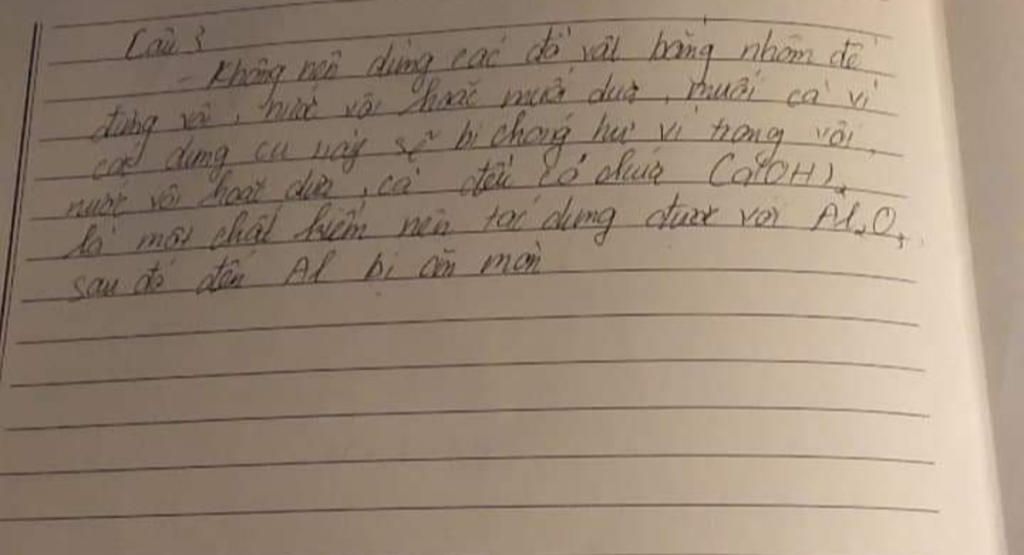 Câu 3
- Không nên dùng các đồ vật bằng nhôm để
đựng vôi, nước vôi hoặc muối dưa, muối cà vì
các dụng cụ này sẽ bị chóng hư vì trong vôi,
nước vôi hoặc dưa, cà đều có chứa Ca(OH)₂
là một chất kiềm nên tác dụng được với Al₂O₃,
sau đó đến Al bị ăn mòn